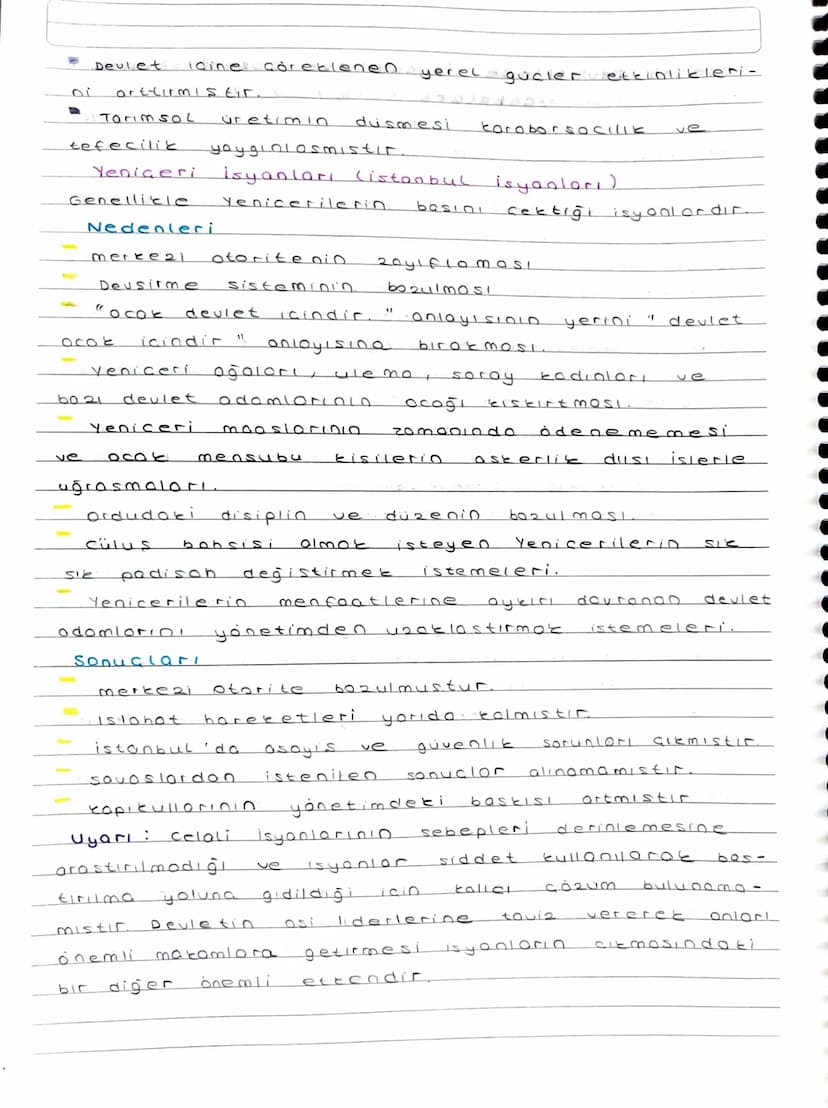 Devlet içine çöreklenen yerel güçler etkinlikleri-
ni arttırmıştır.
Tarımsal üretimin düşmesi karaborsacılık ve
tefecilik yaygınlaşmıştır.
Yeniçeri İsyanları (istanbul isyanları)
Genellikle Yeniçerilerin başını çektiği isyanlardır.
Nedenleri
- merkezi otoritenin zayıflaması
- Devşirme sisteminin bozulması
- "ocak devlet içindir." anlayışının yerini "devlet
ocak içindir" anlayışına bırakması.
- Yeniçeri ağaları, ulema, saray kadınları ve
bazı devlet adamlarının ocağı kışkırtması.
- Yeniçeri maaşlarının zamanında ödenememesi
ve ocak mensubu kişilerin askerlik dışı işlerle
uğraşmaları.
- ordudaki disiplin ve düzenin bozulması.
- cülus bahşişi almak isteyen Yeniçerilerin sık
sık padişah değiştirmek istemeleri.
- Yenicerilerin menfaatlerine aykırı davranan devlet
adamlarını yönetimden uzaklaştırmak istemeleri.
Sonuçları
- merkezi otorite bozulmuştur.
- Islahat hareketleri yarıda kalmıştır.
- istanbul'da asayiş ve güvenlik sorunları çıkmıştır.
- savaşlardan istenilen sonuçlar alınamamıştır.
- kapıkullarının yönetimdeki baskısı artmıştır
Uyarı : celali isyanlarının sebepleri derinlemesine
araştırılmadığı ve isyanlar şiddet kullanılarak bas-
tırılma yoluna gidildiği için kalıcı çözüm bulunama-
mıştır. Devletin asi liderlerine taviz vererek onları
önemli makamlara getirmesi isyanların çıkmasındaki
bir diğer önemli etkendir.